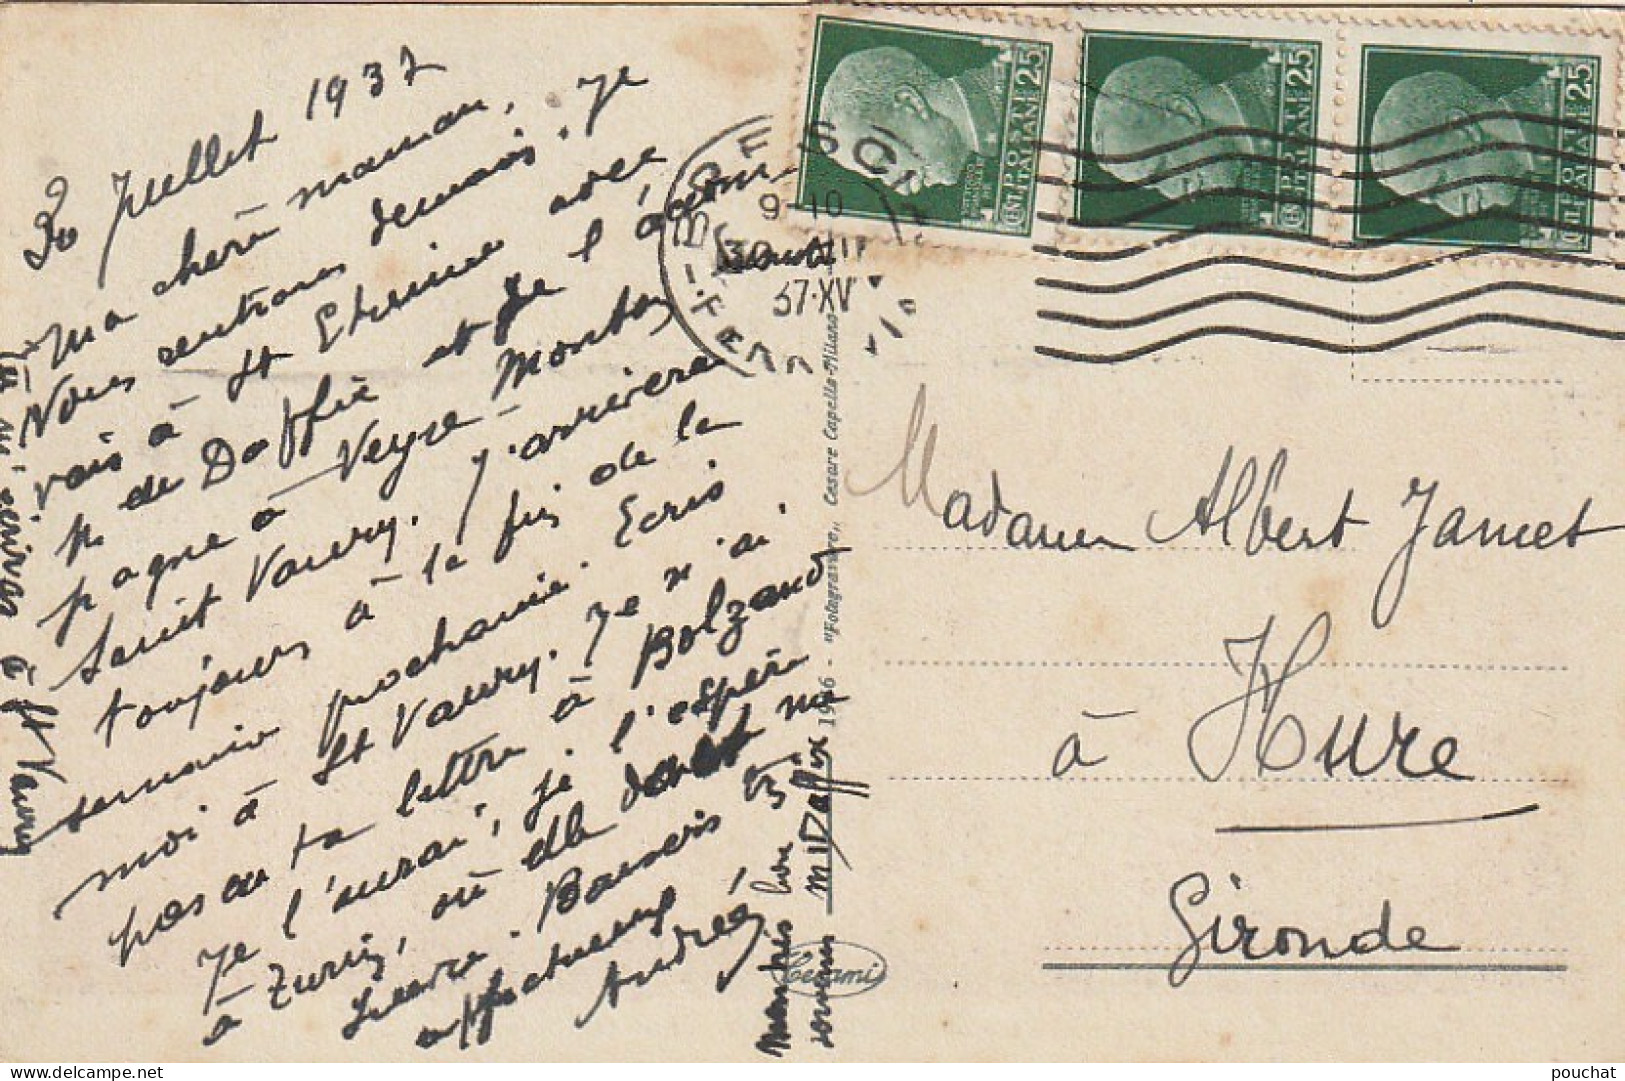 30 Juillet 1937
Ma chère maman,
Nous rentrons demain. Je
vais à St Etienne avec
p. de Daffix et je l'accom-
pagne à Veyre-Monton
Saint Vaury. J'arriverai
toujours à la fin de la
semaine prochaine. Ecris
moi à St Vaury. Je n'ai
pas eu ta lettre à Bolzano
Je l'aurai, je l'espère
à Zurich, où elle doit me
suivre. Baisers
affectueux
Andrée
à St Vaury
Daffix
9-10
37·XV
POSTE ITALIANE 25
POSTE ITALIANE 25
POSTE ITALIANE 25
1936 - "Fotogravure, Cesare Capello-Milano
Cecami
Madame Albert Jamet
à Hure
Gironde
pouchat